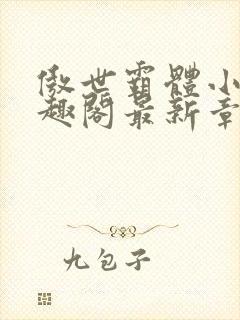 傲世霸體小
趣閣最新章
九包子